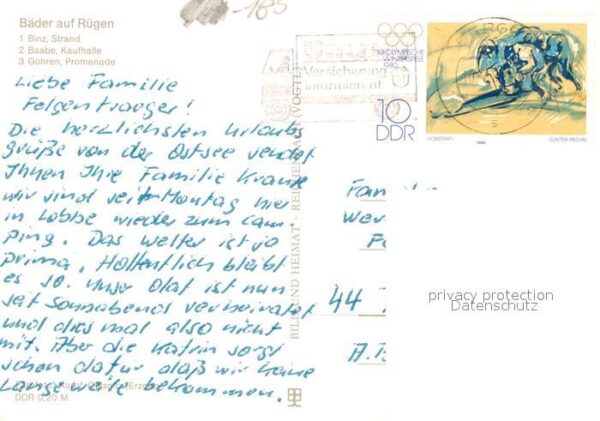 -183
Bäder auf Rügen
1 Binz, Strand
2 Baabe, Kaufhalle
3 Göhren, Promenade
Liebe Familie
Felgentraeger!
Die herzlichsten Urlaubs
grüße von der Ostsee sendet
Ihnen Ihre Familie Krause
wir sind seit Montag hier
in Lobbe wieder zum Cam-
ping. Das Wetter ist so
prima, Hoffentlich bleibt
es so. Unser Olaf ist nun
seit Sonnabend verheiratet
und diesmal also nicht
mit. Aber die Katrin sorgt
schon dafür daß wir keine
Langeweile bekommen.
DDR 0,20 M
BILD UND HEIMAT · REICHENBACH (VOGTL)
Versicherung
informiert
XIII. OLYMPISCHE
WINTERSPIELE
1980
10
DDR
1980
GÜNTER RECHN
Fam
Wer
44
privacy protection
Datenschutz